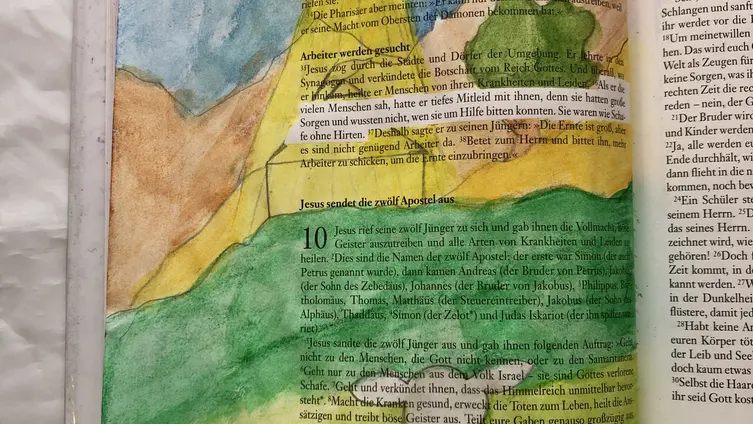 riefen sie.
³⁴Die Pharisäer aber meinten: »Er
er seine Macht vom Obersten der Dämonen bekommen hat.«
Arbeiter werden gesucht
³⁵Jesus zog durch die Städte und Dörfer der Umgebung. Er lehrte in den
Synagogen und verkündete die Botschaft vom Reich Gottes. Und überall, wo
er hinkam, heilte er Menschen von ihren Krankheiten und Leiden. ³⁶Als er die
vielen Menschen sah, hatte er tiefes Mitleid mit ihnen, denn sie hatten große
Sorgen und wussten nicht, wen sie um Hilfe bitten konnten. Sie waren wie Scha-
fe ohne Hirten. ³⁷Deshalb sagte er zu seinen Jüngern: »Die Ernte ist groß, aber
es sind nicht genügend Arbeiter da. ³⁸Betet zum Herrn und bittet ihn, mehr
Arbeiter zu schicken, um die Ernte einzubringen.«
Jesus sendet die zwölf Apostel aus
10 Jesus rief seine zwölf Jünger zu sich und gab ihnen die Vollmacht, böse
Geister auszutreiben und alle Arten von Krankheiten und Leiden zu
heilen. ²Dies sind die Namen der zwölf Apostel: der erste war Simon (der auch
Petrus genannt wurde), dann kamen Andreas (der Bruder von Petrus), Jakobus
(der Sohn des Zebedäus), Johannes (der Bruder von Jakobus), ³Philippus, Bar-
tholomäus, Thomas, Matthäus (der Steuereintreiber), Jakobus (der Sohn des
Alphäus), Thaddäus, ⁴Simon (der Zelot*) und Judas Iskariot (der ihn später ver-
riet).
⁵Jesus sandte die zwölf Jünger aus und gab ihnen folgenden Auftrag: »Geht
nicht zu den Menschen, die Gott nicht kennen, oder zu den Samaritanern.
⁶Geht nur zu den Menschen aus dem Volk Israel – sie sind Gottes verlorene
Schafe. ⁷Geht und verkündet ihnen, dass das Himmelreich unmittelbar bevor-
steht*. ⁸Macht die Kranken gesund, erweckt die Toten zum Leben, heilt die Aus-
sätzigen und treibt böse Geister aus. Teilt eure Gaben genauso großzügig aus,
Schlangen und sanft
ihr werdet vor die
¹⁸Um meinetwillen
hen. Das wird euch
Welt als Zeugen für
keine Sorgen, was i
rechten Zeit die rech
reden – nein, der G
²¹Der Bruder wird
und Kinder werden
²²Ja, alle werden eu
Ende durchhält, wi
dann flieht in die n
kommen, noch bev
²⁴Ein Schüler ste
seinem Herrn. ²⁵D
das seines Herrn.
zeichnet wird, wie
gehören! ²⁶Doch f
Zeit kommt, in d
kannt werden. ²⁷W
in der Dunkelheit
flüstere, damit jed
²⁸Habt keine An
euren Körper töt
der Leib und See
doch kaum etwas
³⁰Selbst die Haare
ihr seid Gott kost